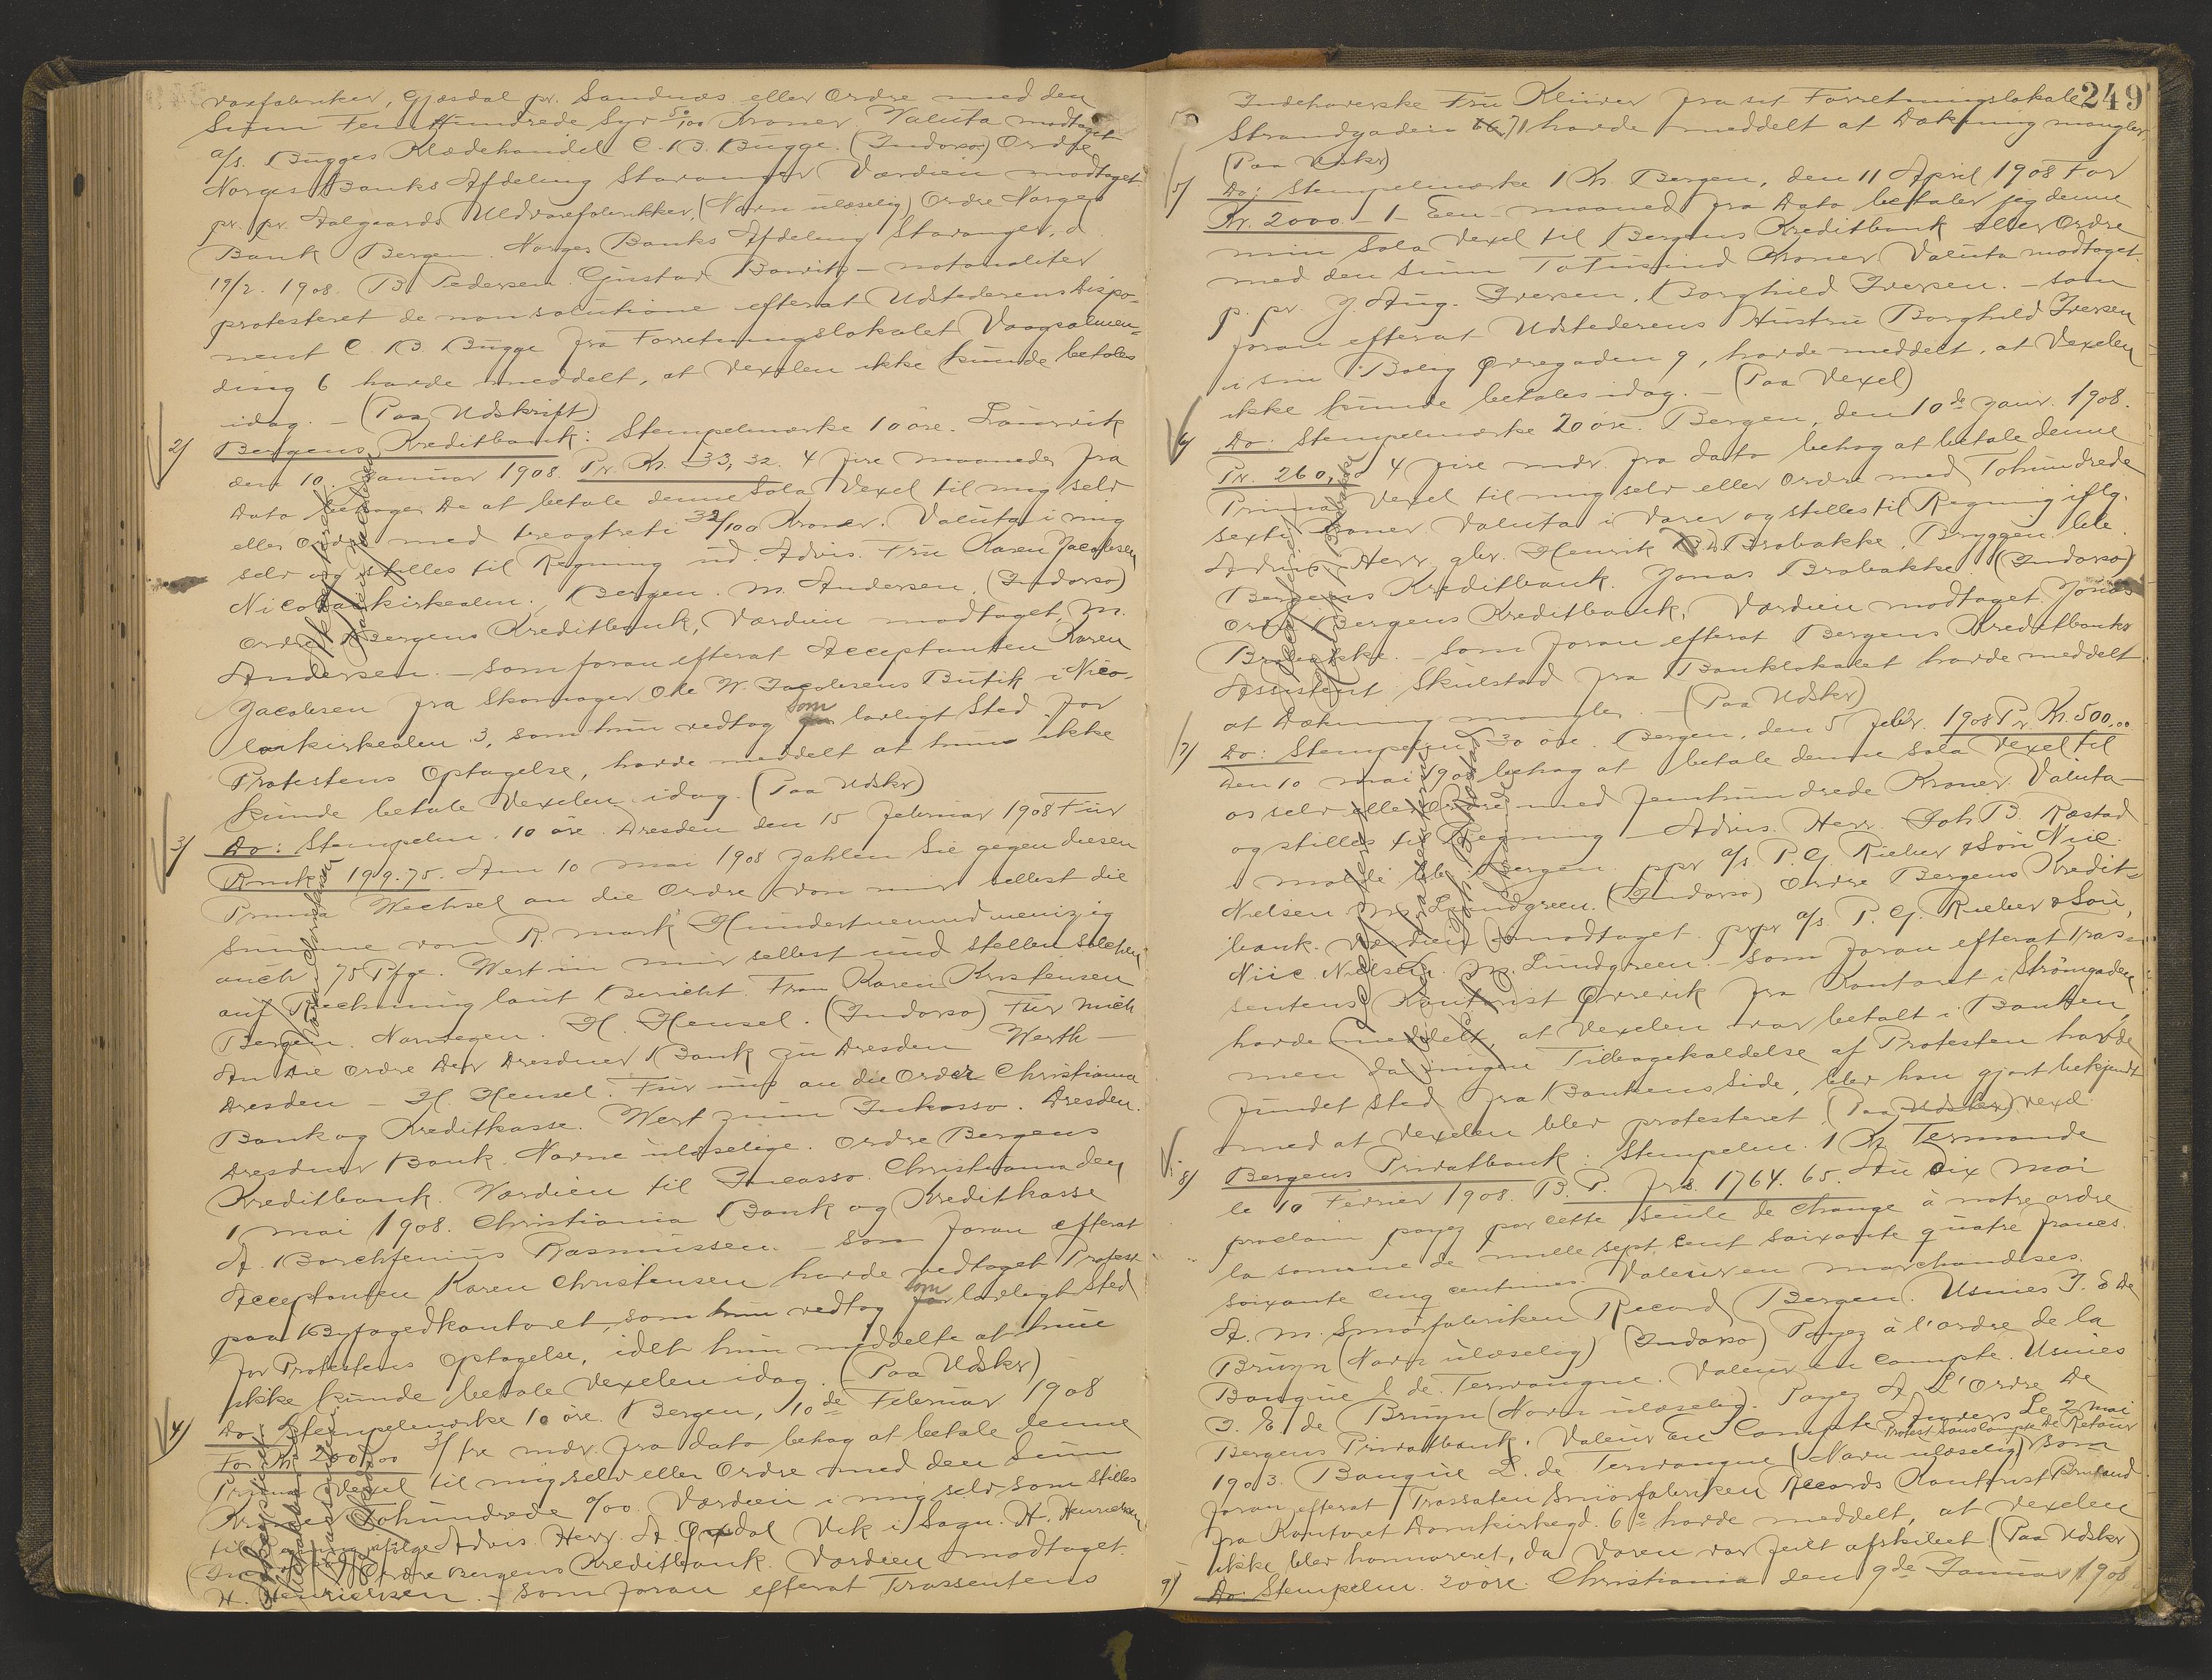 varefabriker, Gjæsdal pr. Sandnæs eller Ordre med den
Sum Fem Hundrede Syv 50/100 Kroner. Valuta modtaget
a/s. Bugges Klædehandel C. B. Bugge. (Indorso) Ordre
Norges Banks Afdeling Stavanger Værdien modtaget
pr. pr. Aalgaards Uldvarefabrikker, (Navn ulæselig) Ordre Norges
Bank Bergen. Norges Banks Afdeling Stavanger, d.
19/2. 1908. B. Pedersen. Gustav – notonaliter
protesteret de non solutione efterat Udstederens Dispo-
nent C. B. Bugge fra Forretningslokalet Vaagsalmen-
ding 6 havde meddelt, at Vexelen ikke kunde betales
idag. – (Paa Udskrift)
2) Bergens Kreditbank: Stempelmærke 10 øre. Laurvik
den 10. Januar 1908. Pr. Kr. 33,32. 4 fire maaneder fra
Dato behager De at betale denne Sola Vexel til mig selv
eller Ordre med treogtreti 32/100 Kroner. Valuta i mig
selv og stilles til Regning ud. Advis. Fru Karen Jacobsen
Nicolaikirkealm. Bergen. M. Andersen. (Indorso)
Ordre Bergens Kreditbank, Værdien modtaget, M.
Andersen. – som foran efterat Acceptanten Karen
Jacobsen fra Skomager Ole W. Jacobsens Butik i Nico-
laikirkealm 3, som hun vedtog som lovligt Sted for
Protestens Optagelse, havde meddelt at hun ikke
kunde betale Vexelen idag. (Paa Udskr)
3) Do: Stempelm. 10 øre. Dresden den 15 Februar 1908 Für
Rmk. 199.75. Am 10 mai 1908 zahlen Sie gegen diesen
Prima Wechsel an die Ordre von mir selbst die
Summe von R. mark Hundertneunundneunzig
auch 75 Pfge. Wert in mir selbst und stellen solchen
auf Rechnung laut Bericht Frau Karen Kristensen
Bergen. Norwegen. H. Hensel. (Indorso) Für mich
An die Ordre Der Dresdner Bank zu Dresden Werth –
Dresden – H. Hensel. Für uns an die Order Christiania
Bank og Kreditkasse. Wert zum Inkasso. Dresden.
Dresdner Bank. Navne ulæselige. Ordre Bergens
Kreditbank. Værdien til Incasso. Christiania den
1 mai 1908. Christiania Bank og Kreditkasse
A. Borchfenius Rasmussen. – som foran efterat
Acceptanten Karen Christensen havde vedtaget Protest
paa Byfogedkontoret, som hun vedtog som lovligt Sted
for Protestens Optagelse, idet hun meddelte at hun
ikke kunde betale Vexelen idag. (Paa Udskr)
4) Do: Stempelmærke 10 øre. Bergen, 10de Februar 1908
For Kr. 200,00 3/ tre mdr. fra dato behag at betale denne
Prima Vexel til mig selv eller Ordre med den Sum
Kroner Tohundrede 0/00. Værdien i mig selv som stilles
til Regning ifølge Advis. Herr. A. Oxdal Vik i Sogn. H. Henriksen
(Indorso) Ordre Bergens Kreditbank. Værdien modtaget.
H. Henriksen. – som foran efterat Trassentens
249
Indehaverske Fru Klüver fra sit Forretningslokale
Strandgaden 71 havde meddelt at Dækning mangler.
(Paa Udskr)
5) Do: Stempelmærke 1 Kr. Bergen, den 11 April 1908 For
Kr. 2000 – 1 – Een – maaned fra Dato betaler jeg denne
min Sola Vexel til Bergens Kreditbank eller Ordre
med den Sum Totusind Kroner Valuta modtaget.
p. pr. J. Aug. Iversen. Borghild Iversen. – som
foran efterat Udstederens Hustru Borghild Iversen
i sin Bolig Øvregaden 9, havde meddelt, at Vexelen
ikke kunde betales idag. – (Paa Vexel)
6) Do: Stempelmærke 20 øre. Bergen, den 10de Januar. 1908.
Pr. 260,00 4 fire mdr. fra dato behag at betale denne
Prima Vexel til mig selv eller Ordre med Tohundrede
sexti Kroner Valuta i Varer og stilles til Regning iflg.
Advis Herr gbr. Henrik Brobakke, Bryggen. bet.
Bergens Kreditbank. Jonas Brobakke (Indorso)
Ordre Bergens Kreditbank, Værdien modtaget Jonas
Brobakke. – som foran efterat Bergens Kreditbanks
Assistent Skulstad fra Banklokalet havde meddelt
at Dækning mangler. – (Paa Udskr)
7) Do: Stempelm 30 øre. Bergen, den 5 Febr. 1908 Pr. Kr. 500,00
Den 10 mai 1908 behag at betale denne Sola Vexel til
os selv eller Ordre med Femhundrede Kroner Valuta –
og stilles til Regning Advis. Herr. Joh. B. Ræstad
i Molde bet. Bergen. ppr a/s. P. G. Rieber & Søn Nic.
Nielsen M. Lundgreen. (Indorso) Ordre Bergens Kredit-
bank. Værdien modtaget. ppr a/s. P. G. Rieber & Søn,
Nic. Nielsen. M. Lundgreen. – som foran efterat Tras-
sentens Kontorist fra Kontoret i Strømgaden
havde meddelt, at Vexelen var betalt i Banken,
men da ingen Tilbagekaldelse af Protesten havde
fundet Sted fra Bankens Side, blev han gjort bekjendt
med at Vexelen blev protesteret. (Paa Udskr) Vexel
8) Bergens Privatbank: Stempelm. 1 Kr. Termonde
le 10 Fevrier 1908. B. P. frs. 1764.65. Au dix Mai
prochain payez par cette Seule de change à notre ordre
la somme de mille sept cent soixante quatre francs.
soixante cinq centimes. Valeur en marchandises.
A. M. Smørfabriken Record Bergen. Usines J. E. De
Bruyn (Navn ulæselig) (Indorso) Payez à l'ordre de la
Banque L. de Terwangne. Valeur en Compte. Usines
J. E. de Bruyn (Navn ulæselig). Payez A L'Ordre De
Bergens Privatbank. Valeur En Compte Anvers Le 2 Mai
Protest Sans Compte De Retour
1903. Banque L. de Terwangne (Navn ulæselig) som
foran efterat Trassaten Smørfabriken Records Kontorist
fra Kontoret Domkirkegd. 6a havde meddelt, at Vexelen
ikke blev honnoreret, da Varen var feilt afskibet (Paa Udskr)
9) Do: Stempelm. 20 øre. Christiania den 9de Januar 1908